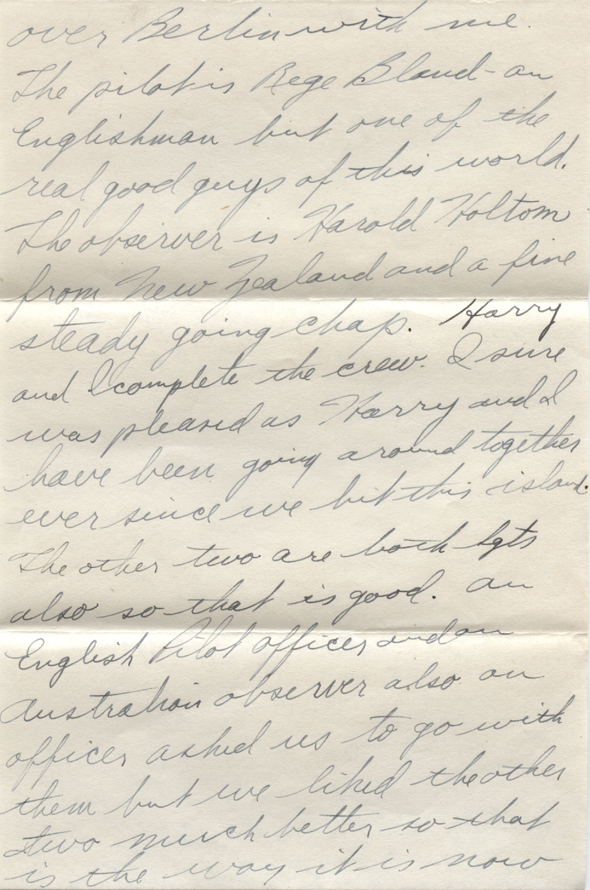 over Berlin with me.
The pilot is Rege Bland - an
Englishman but one of the
real good guys of this world.
The observer is Harold Holtom
from New Zealand and a fine
steady going chap. Harry
and I complete the crew. I sure
was pleased as Harry and I
have been going around together
ever since we hit this island.
The other two are both Sgts
also so that is good. An
English Pilot officer and an
Australian observer also an
officer asked us to go with
them but we liked the other
two much better so that
is the way it is now